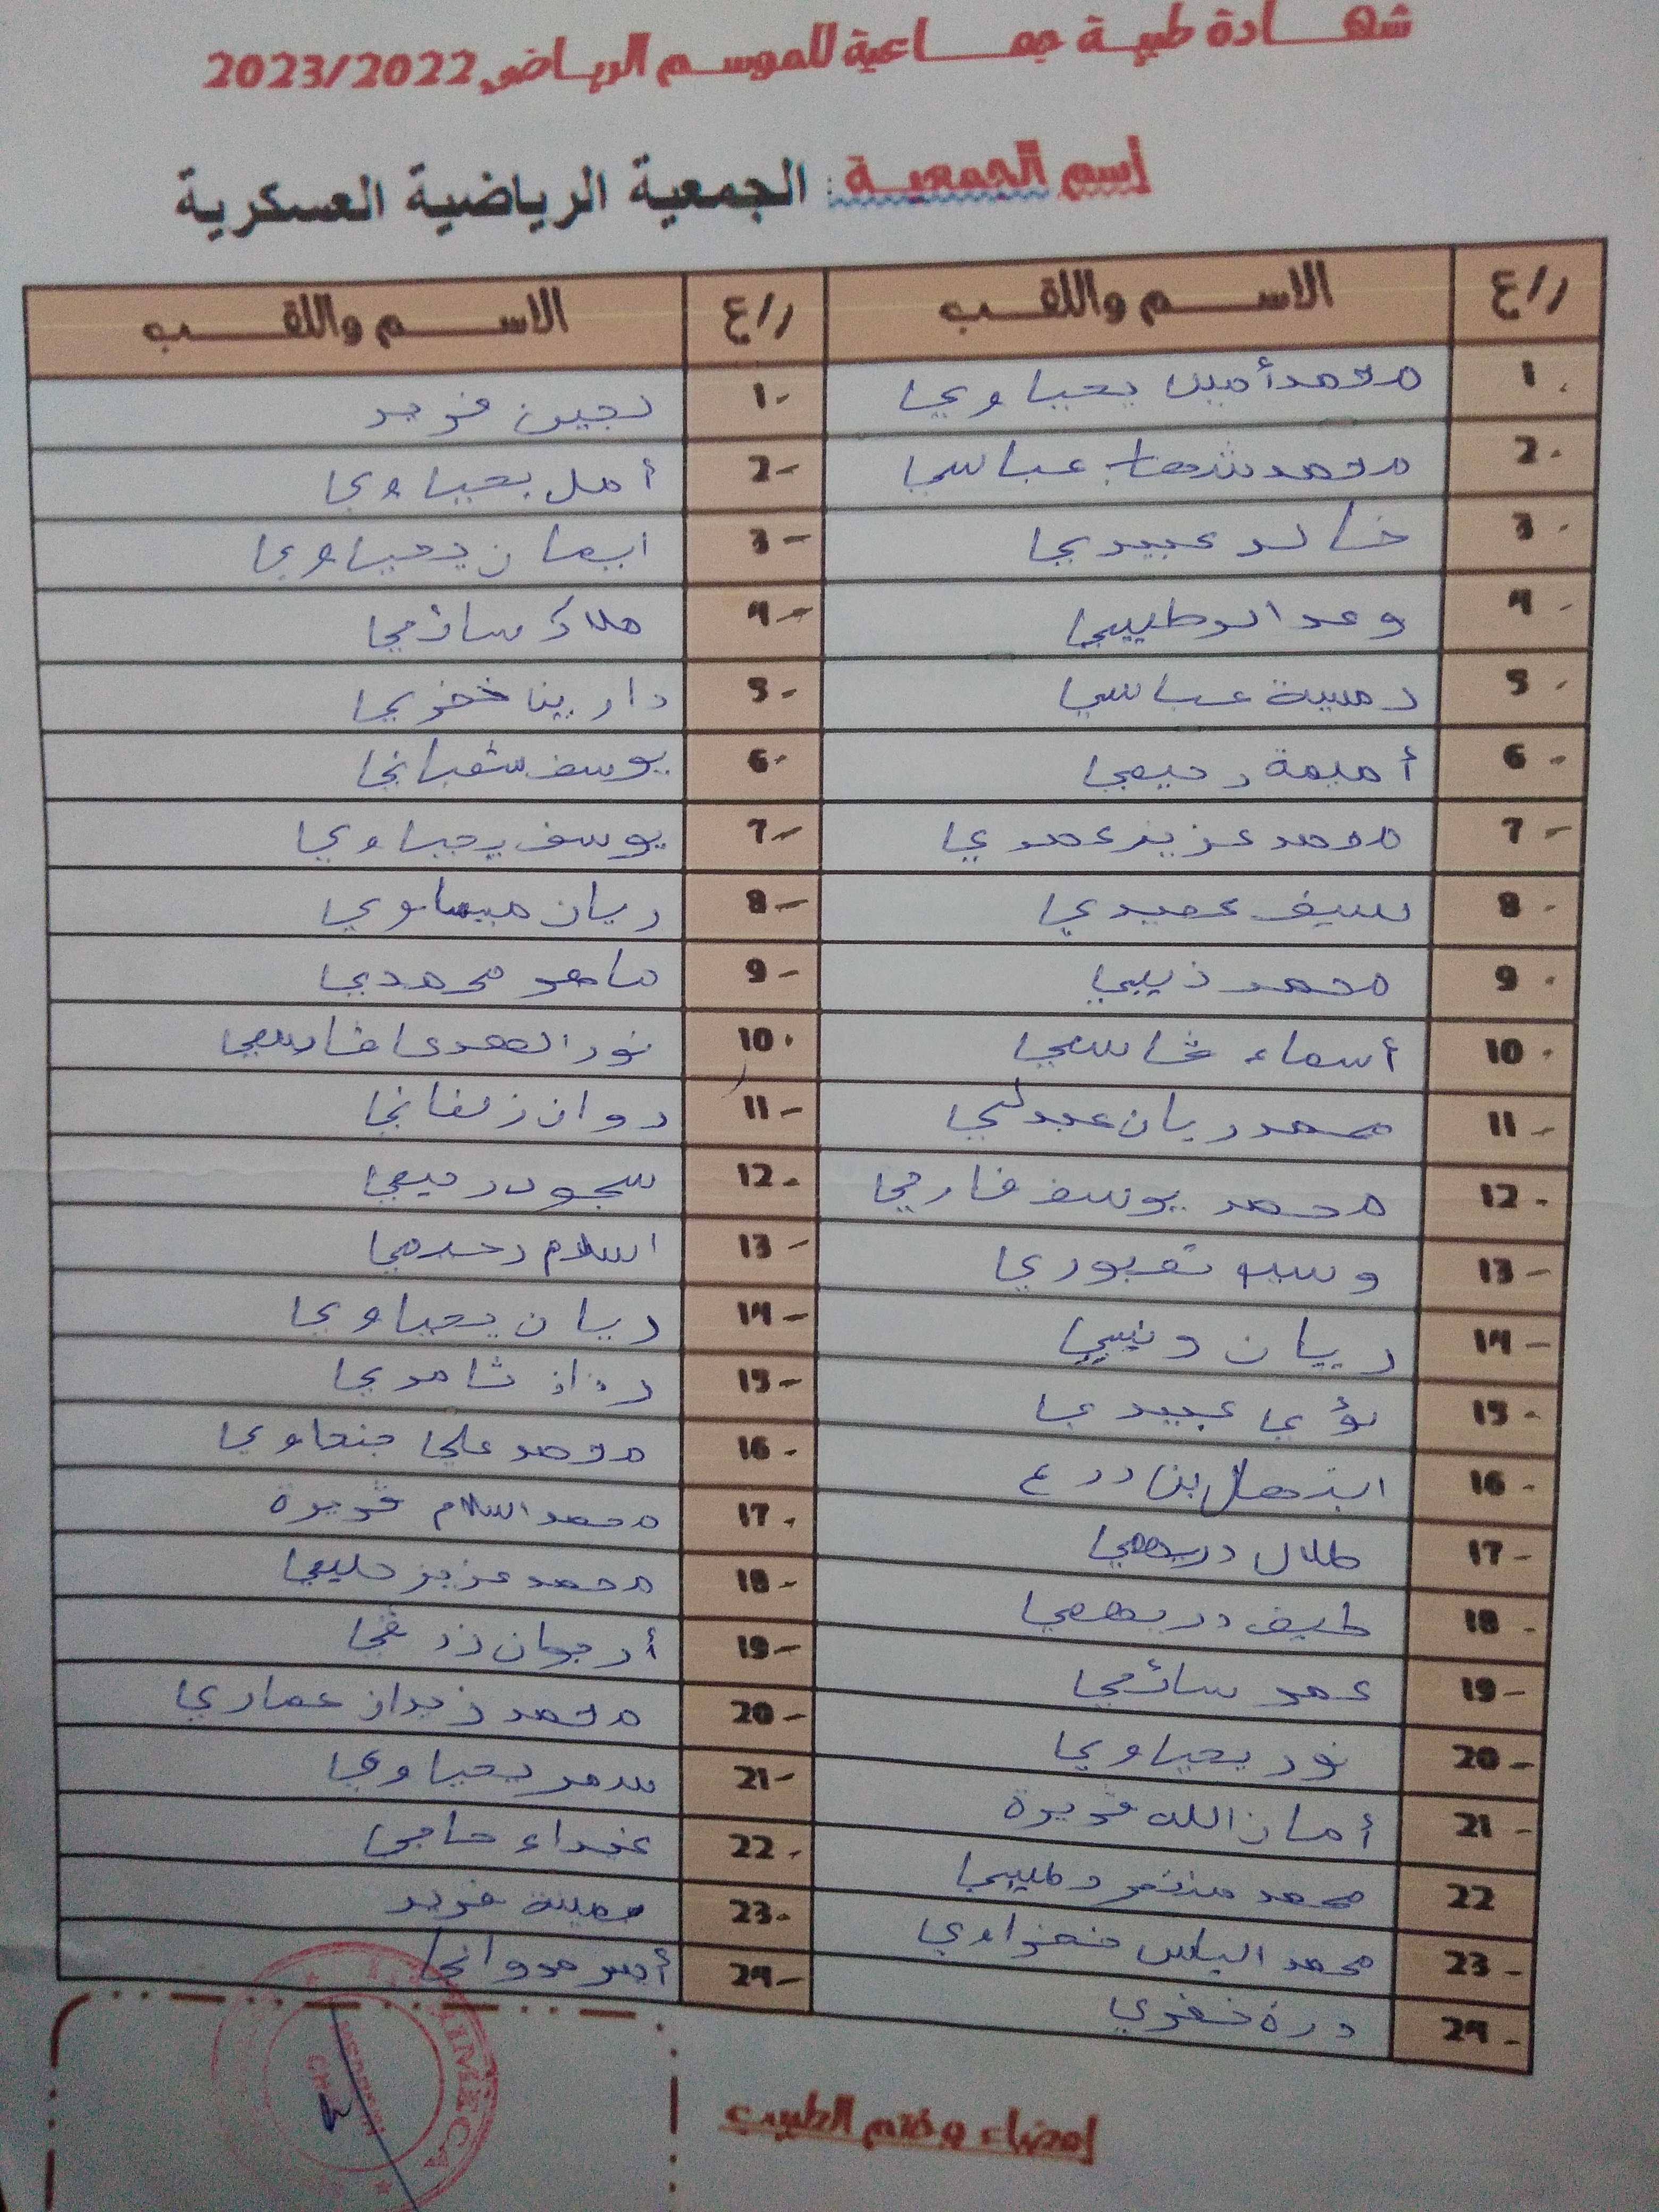 شهادة طبية جماعية للموسم الرياضي 2023/2022
إسم الجمعية: الجمعية الرياضية العسكرية
ر/ع الاسم واللقب ر/ع الاسم واللقب
1. محمد أمين يحياوي 1- لجين فريد
2. محمد شهاب عباسي 2- أمل يحياوي
3. خالد عبيدي 3- ايمان يحياوي
4. وعد الوطيبي 4- ملاك سائمي
5. رميسة عباسي 5- دارينا خضري
6- أميمة رحيمي 6- يوسف شعباني
7- محمد عزيز عمري 7- يوسف يحياوي
8- سيف عميدي 8- ريان ميساوي
9. محمد ذيبي 9- ماهر محمدي
10. أسماء قاسمي 10. نور الهدى قاسمي
11- محمد ريان عبدلي 11- روان زلفاني
12- محمد يوسف فارحي 12- سجود رحيمي
13- تعبوري 13- اسلام رحيمي
14- ريان 14- ريان يحياوي
15- لؤي عبيدي 15- رزان ثامري
16- ابتهال بن درع 16- محمد علي جنحاوي
17- طلال دريهمي 17- محمد اسلام قويرة
18- طيف دريهمي 18- محمد عزيز حليمي
19- عمر سائمي 19- أرجوان زرقي
20- نور يحياوي 20- محمد نزار عماري
21- أمان الله قويرة 21- سمر يحياوي
22 محمد منتصر وطيبي 22- غفراء حاجي
23- محمد الياس خضراوي 23- يمينة فريد
24- درة خضري 24- أيسر مرواني
إمضاء وختم الطبيب